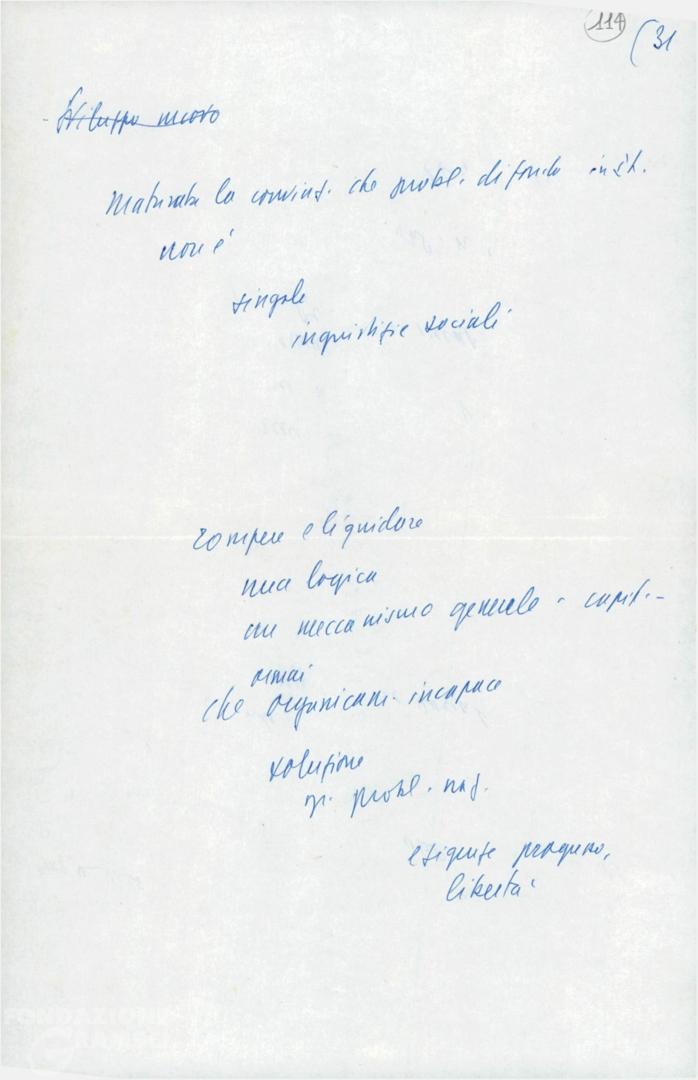 114
(31
- Sviluppo nuovo
Maturata la convinz. che probl. di fondo in It.
non è
singole
ingiustizie sociali
rompere e liquidare
una logica
un meccanismo generale - capit. -
ormai
che organicam. incapace
soluzione
probl. naz.
esigenze progresso,
libertà
FONDAZIONE
GRAMSCI